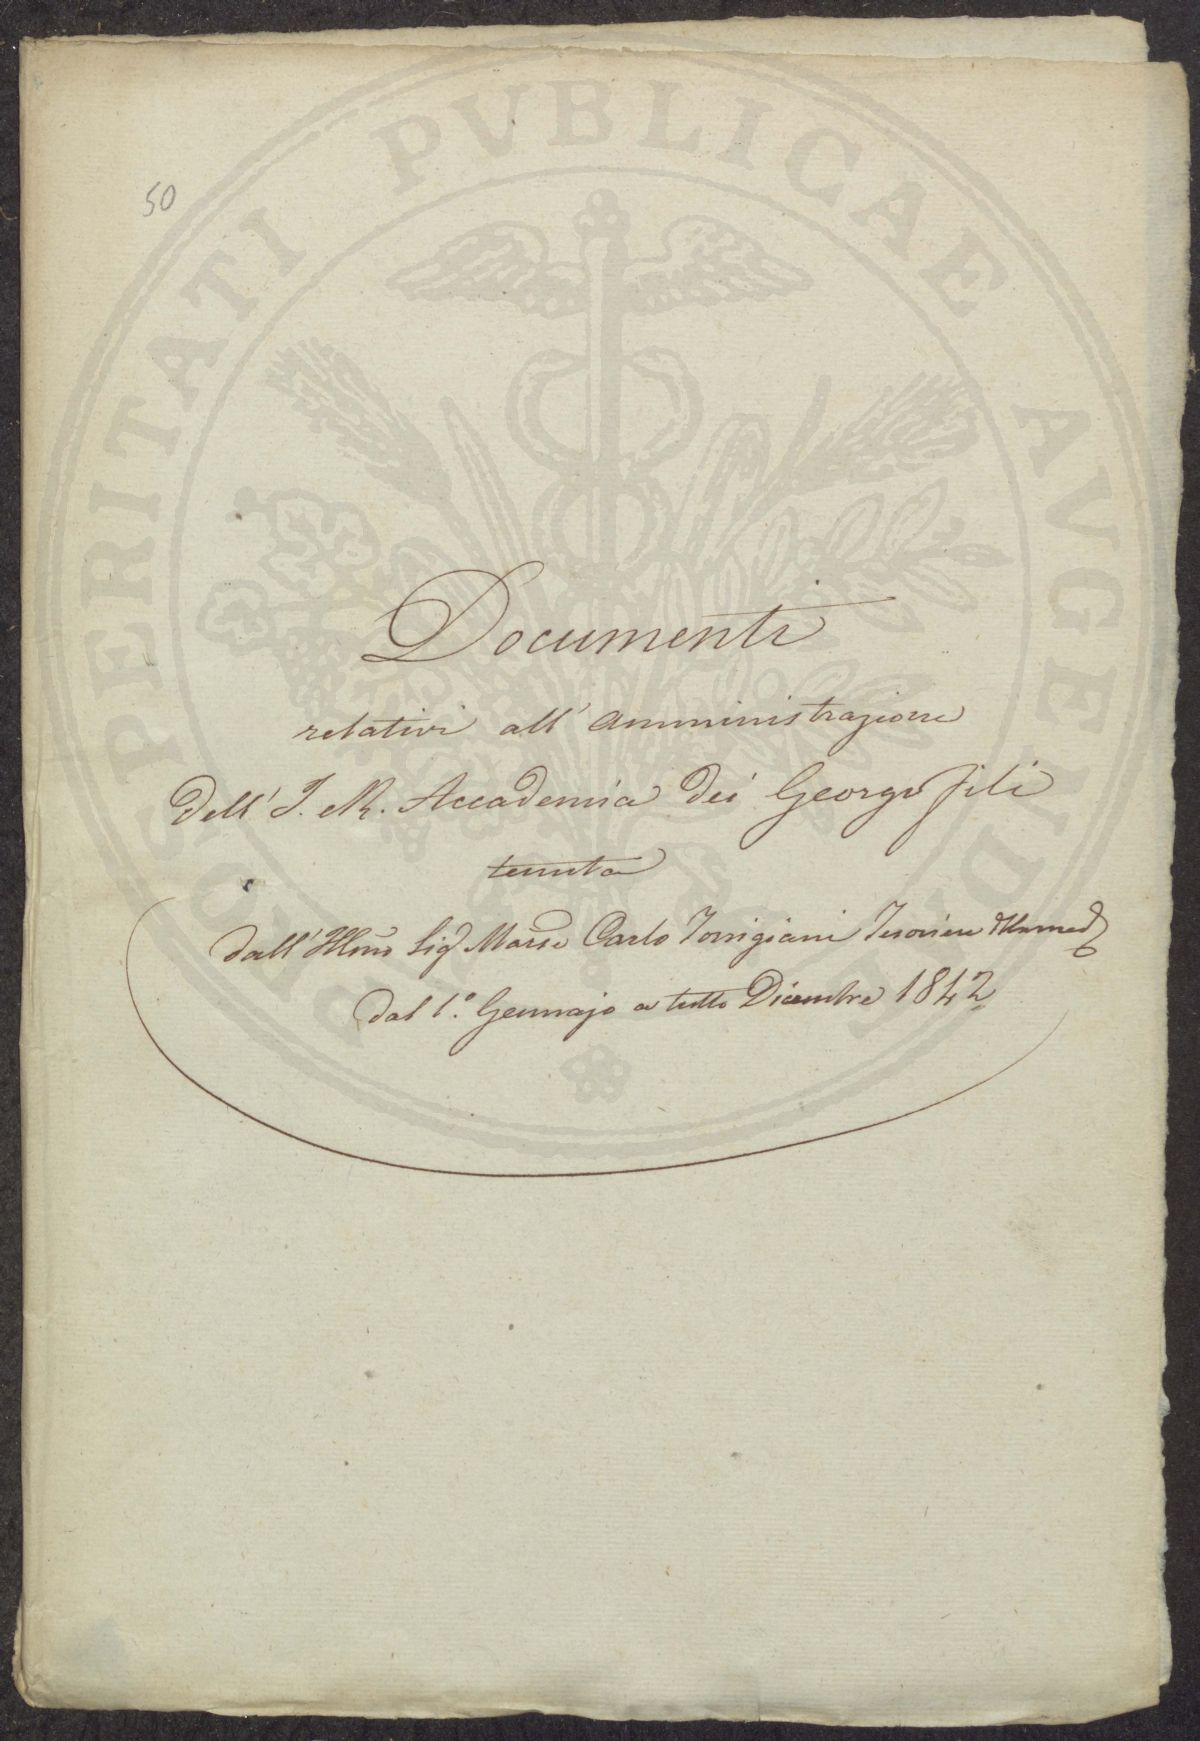 50
PROSPERITATI PUBLICAE AUGENDAE
Documenti
relativi all' amministrazione
dell' I. e R. Accademia dei Georgofili
tenuta
dall' Illmo Sig Marse Carlo Torrigiani Tesoriere
dal 1.° Gennajo a tutto Dicembre 1842